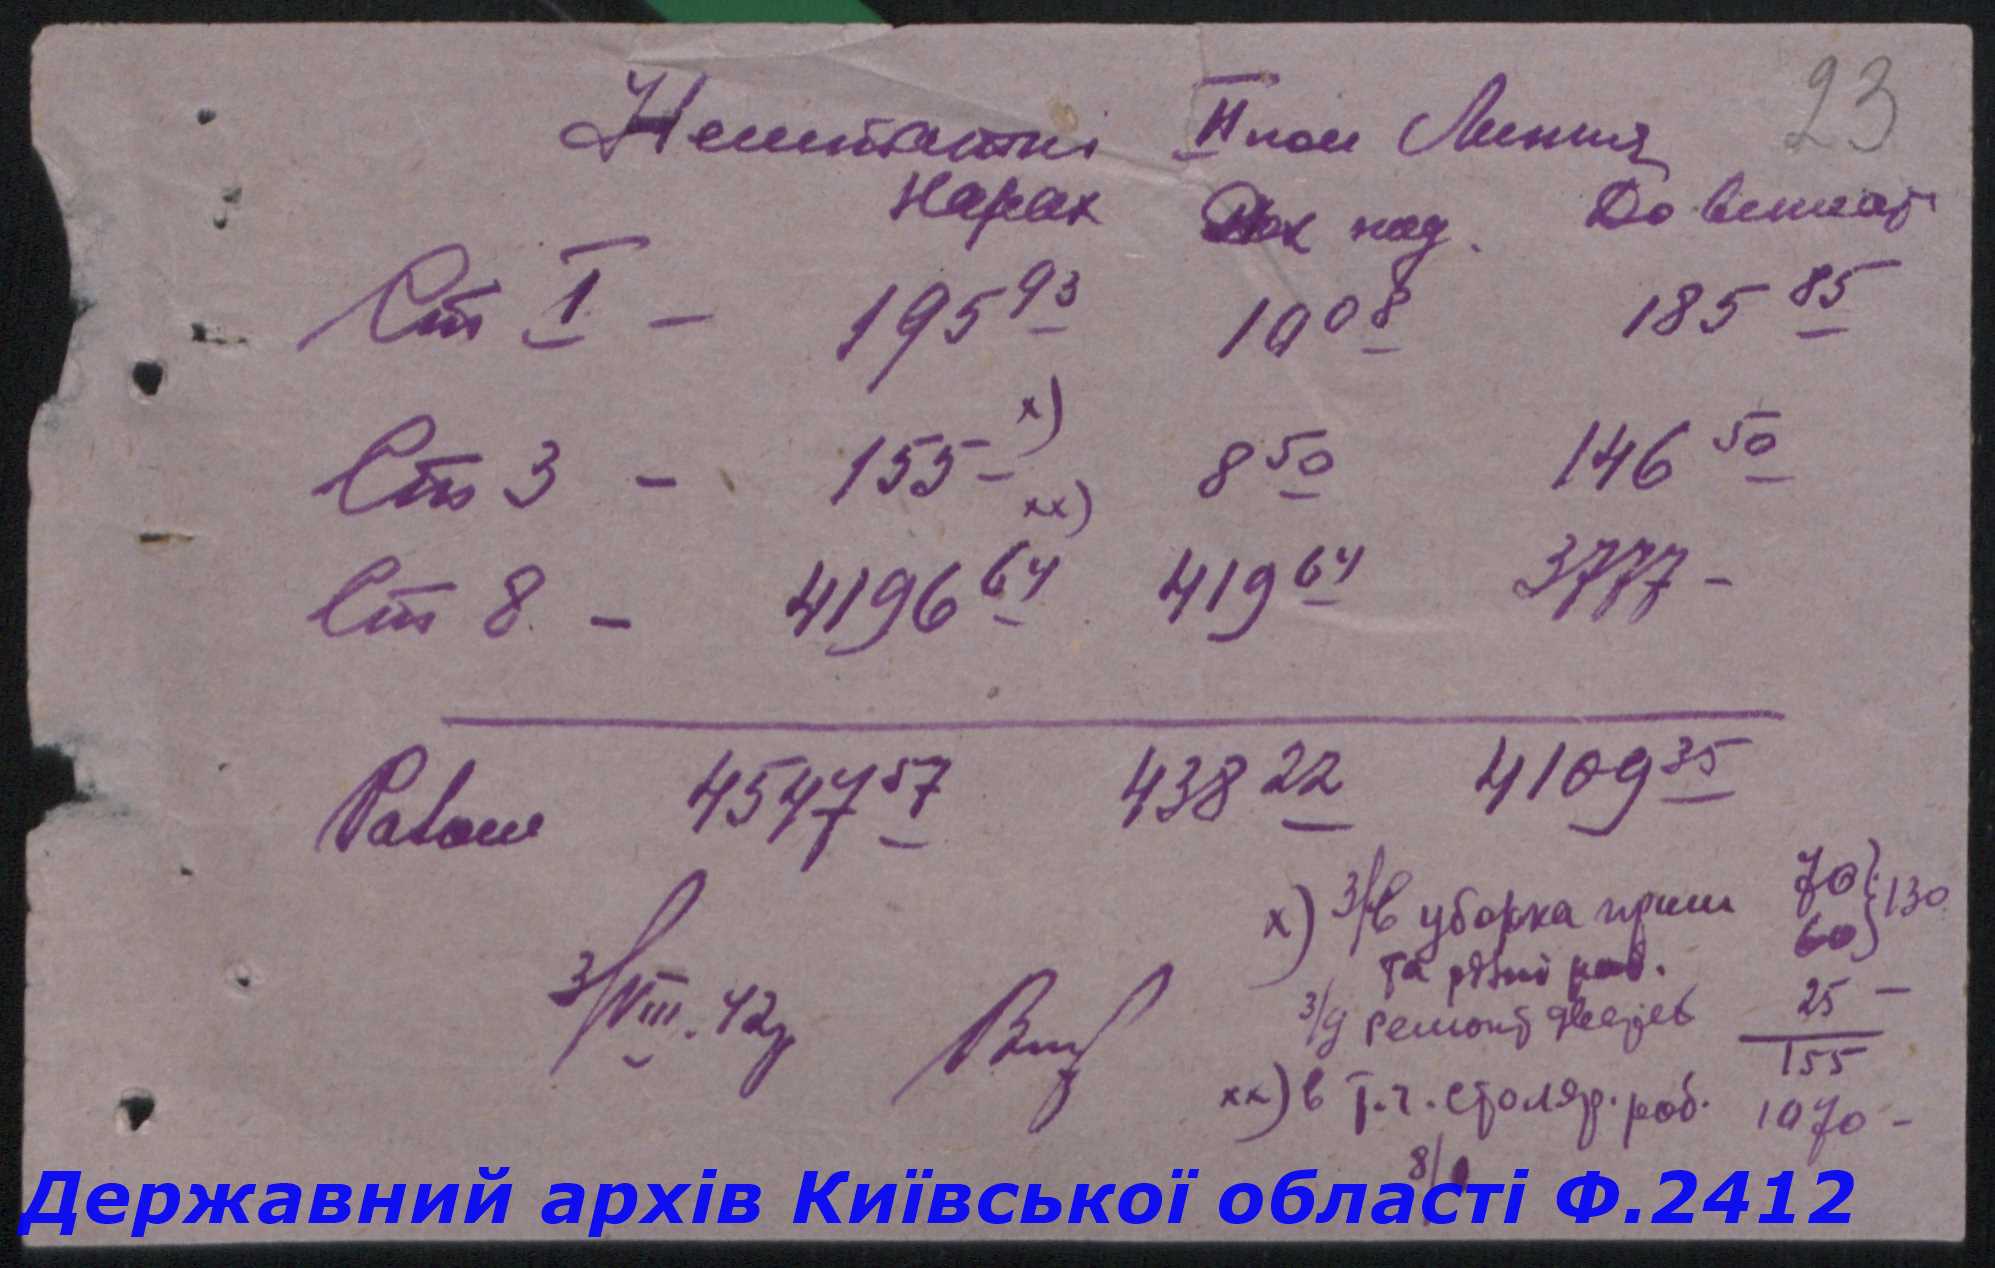 23
Нештатні II пол Липня
Нарах Пох под. До виплат
Ст I — 195 93 10 08 185 85
х)
Ст 3 — 155 — 8 50 146 50
хх)
Ст 8 — 4196 64 419 64 3777 —
Разом 4547 57 438 22 4109 35
х) 3/в уборка прим 70
та різні роб. 60 } 130
3/VIII. 42р
3/д ремонт дверей 25 —
155
хх) в т.ч. столяр. роб. 1070 —
Державний архів Київської області Ф.2412